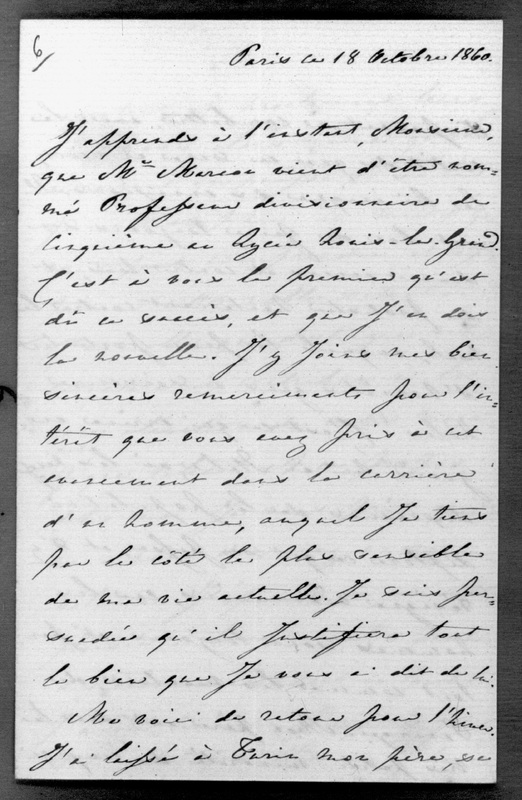 6/
Paris ce 18 Octobre 1860.
J'apprends à l'instant, Monsieur,
que Mr Marcou vient d'être nom=
mé Professeur divisionnaire de
Cinquième au Lycée Louis-le-Grand.
C'est à vous le premier qu'est
dû ce succès, et que J'en dois
la nouvelle. J'y Joins mes bien
sincères remerciements pour l'in=
térêt que vous avez pris à cet
evenement dans la carrière
d'un homme, auquel Je tiens
par le côté le plus sensible
de ma vie actuelle. Je suis per=
suadée qu'il Justifiera tout
le bien que Je vous ai dit de lui.
Me voici de retour pour l'hiver.
J'ai laissé à Turin mon père, sa